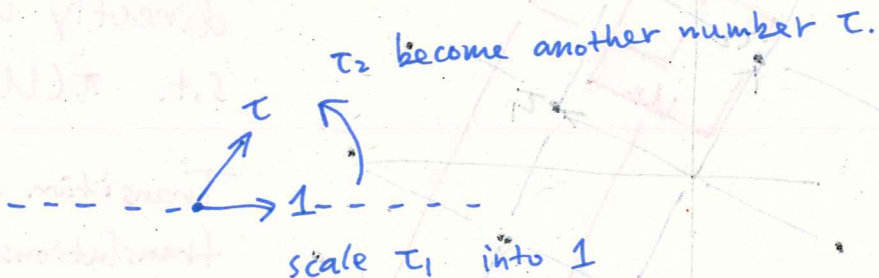 τ₂ become another number τ.
τ
1
scale τ₁ into 1